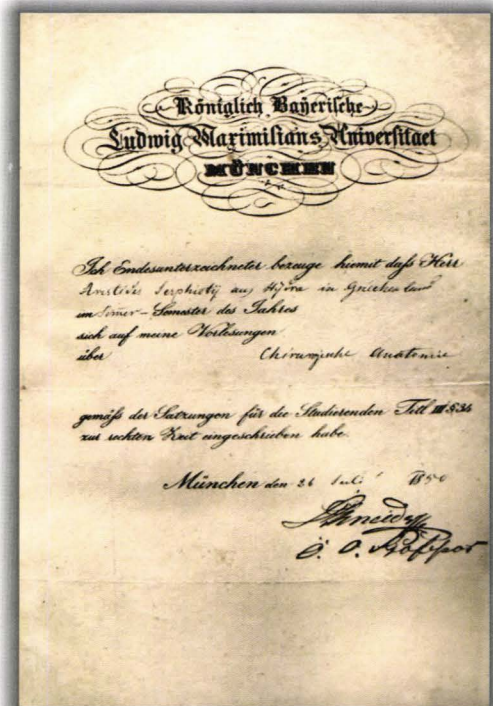 Königlich Bayerische
Ludwig Maximilians Universitaet
MÜNCHEN
Ich Endesunterzeichneter bezeuge hiemit daß Herr
aus Hydra in Griechenland
im Semester des Jahres
sich auf meine Vorlesungen
über Chirurgische Anatomie
gemäß der Satzungen für die Studierenden Titl III §.34
zur rechten Zeit eingeschrieben habe.
München den 26 Juli 1850
Schneider
ö. o. Professor